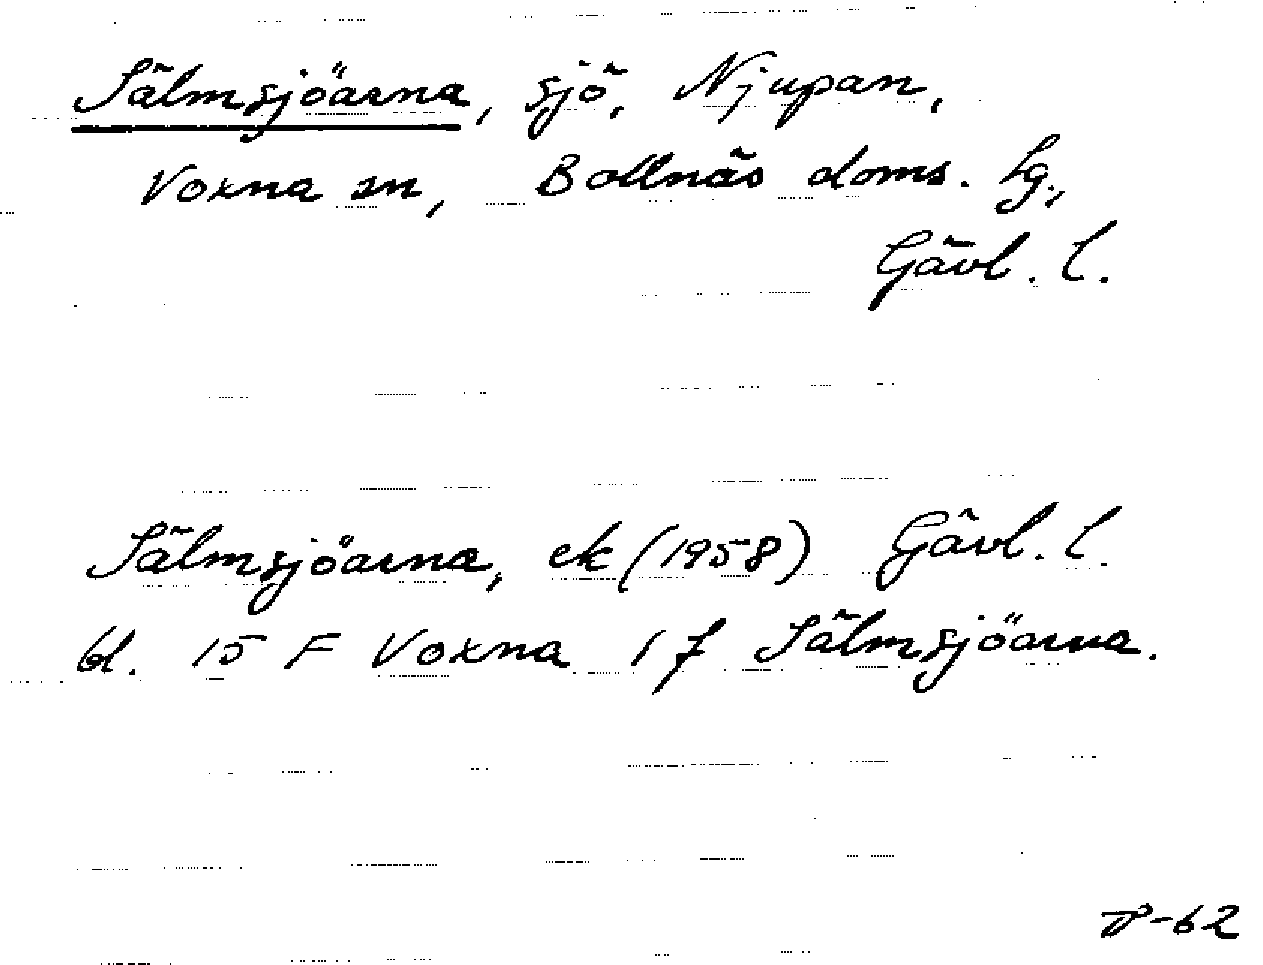 Sälmsjöarna, sjö, Njupan,
Voxna sn, Bollnäs doms. lg.,
Gävl. l.
Sälmsjöarna, ek (1958) Gävl. l.
bl. 15 F Voxna 1 f Sälmsjöarna.
P-62